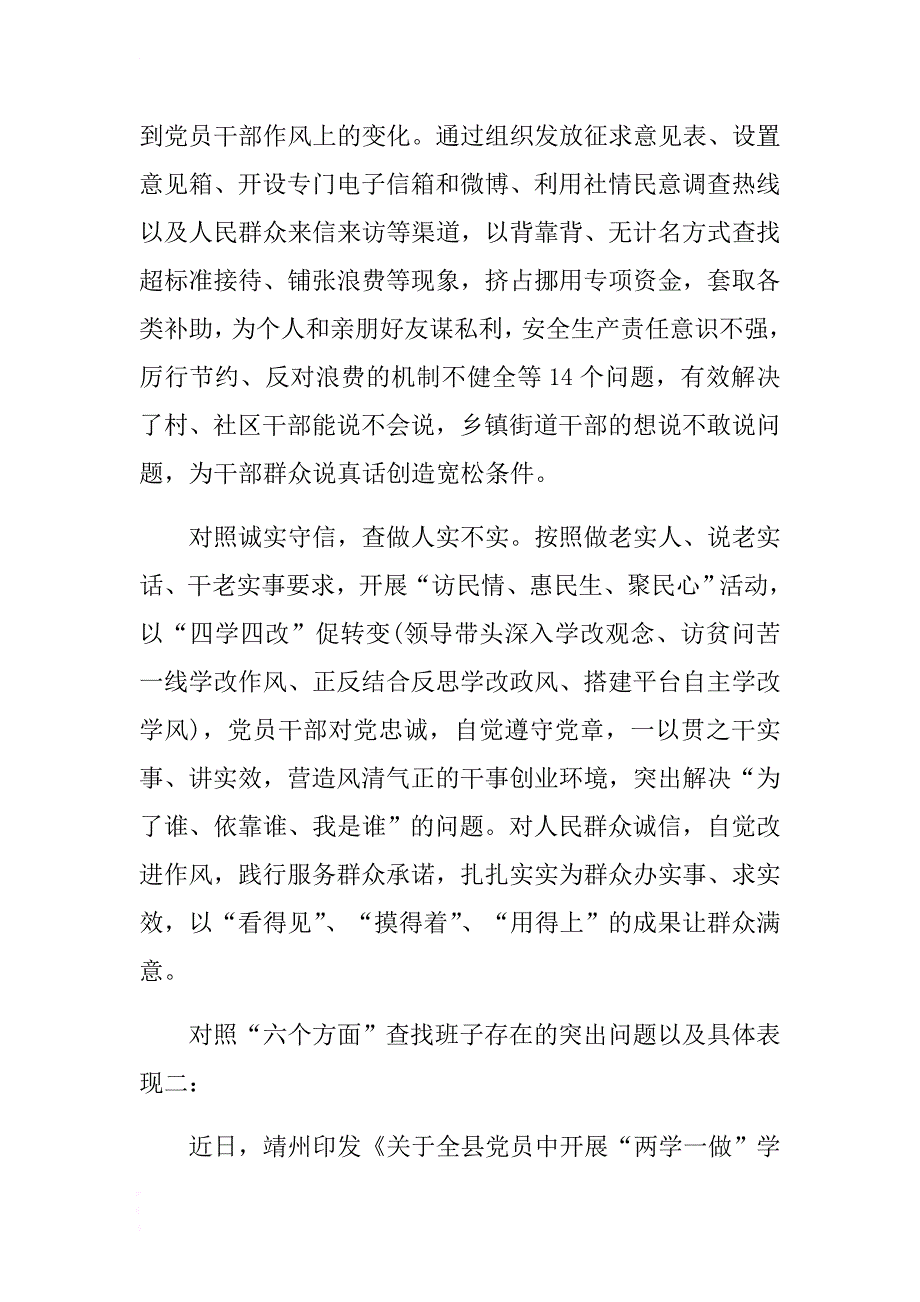 到党员干部作风上的变化。通过组织发放征求意见表、设置
意见箱、开设专门电子信箱和微博、利用社情民意调查热线
以及人民群众来信来访等渠道，以背靠背、无计名方式查找
超标准接待、铺张浪费等现象，挤占挪用专项资金，套取各
类补助，为个人和亲朋好友谋私利，安全生产责任意识不强，
厉行节约、反对浪费的机制不健全等 14 个问题，有效解决
了村、社区干部能说不会说，乡镇街道干部的想说不敢说问
题，为干部群众说真话创造宽松条件。
对照诚实守信，查做人实不实。按照做老实人、说老实
话、干老实事要求，开展“访民情、惠民生、聚民心”活动，
以“四学四改”促转变(领导带头深入学改观念、访贫问苦
一线学改作风、正反结合反思学改政风、搭建平台自主学改
学风)，党员干部对党忠诚，自觉遵守党章，一以贯之干实
事、讲实效，营造风清气正的干事创业环境，突出解决“为
了谁、依靠谁、我是谁”的问题。对人民群众诚信，自觉改
进作风，践行服务群众承诺，扎扎实实为群众办实事、求实
效，以“看得见”、“摸得着”、“用得上”的成果让群众满
意。
对照“六个方面”查找班子存在的突出问题以及具体表
现二：
近日，靖州印发《关于全县党员中开展“两学一做”学